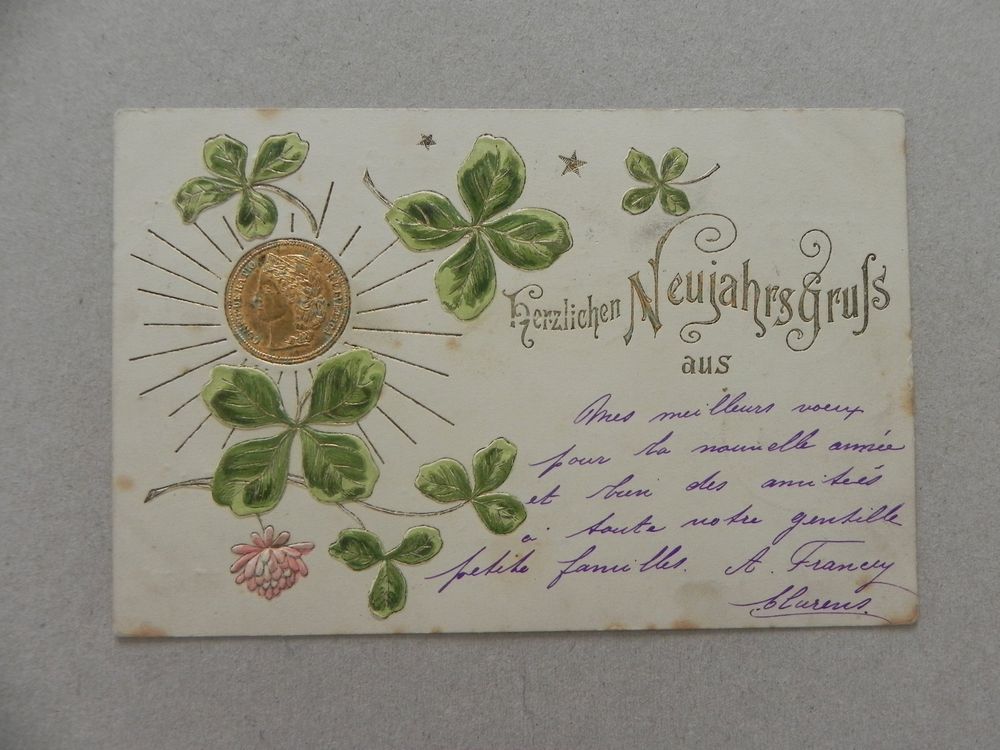 Herzlichen Neujahrsgruſs
aus
Mes meilleurs voeux
pour la nouvelle année
et bien des amitiés
à toute votre gentille
petite familles. A. Francey
Clarens.